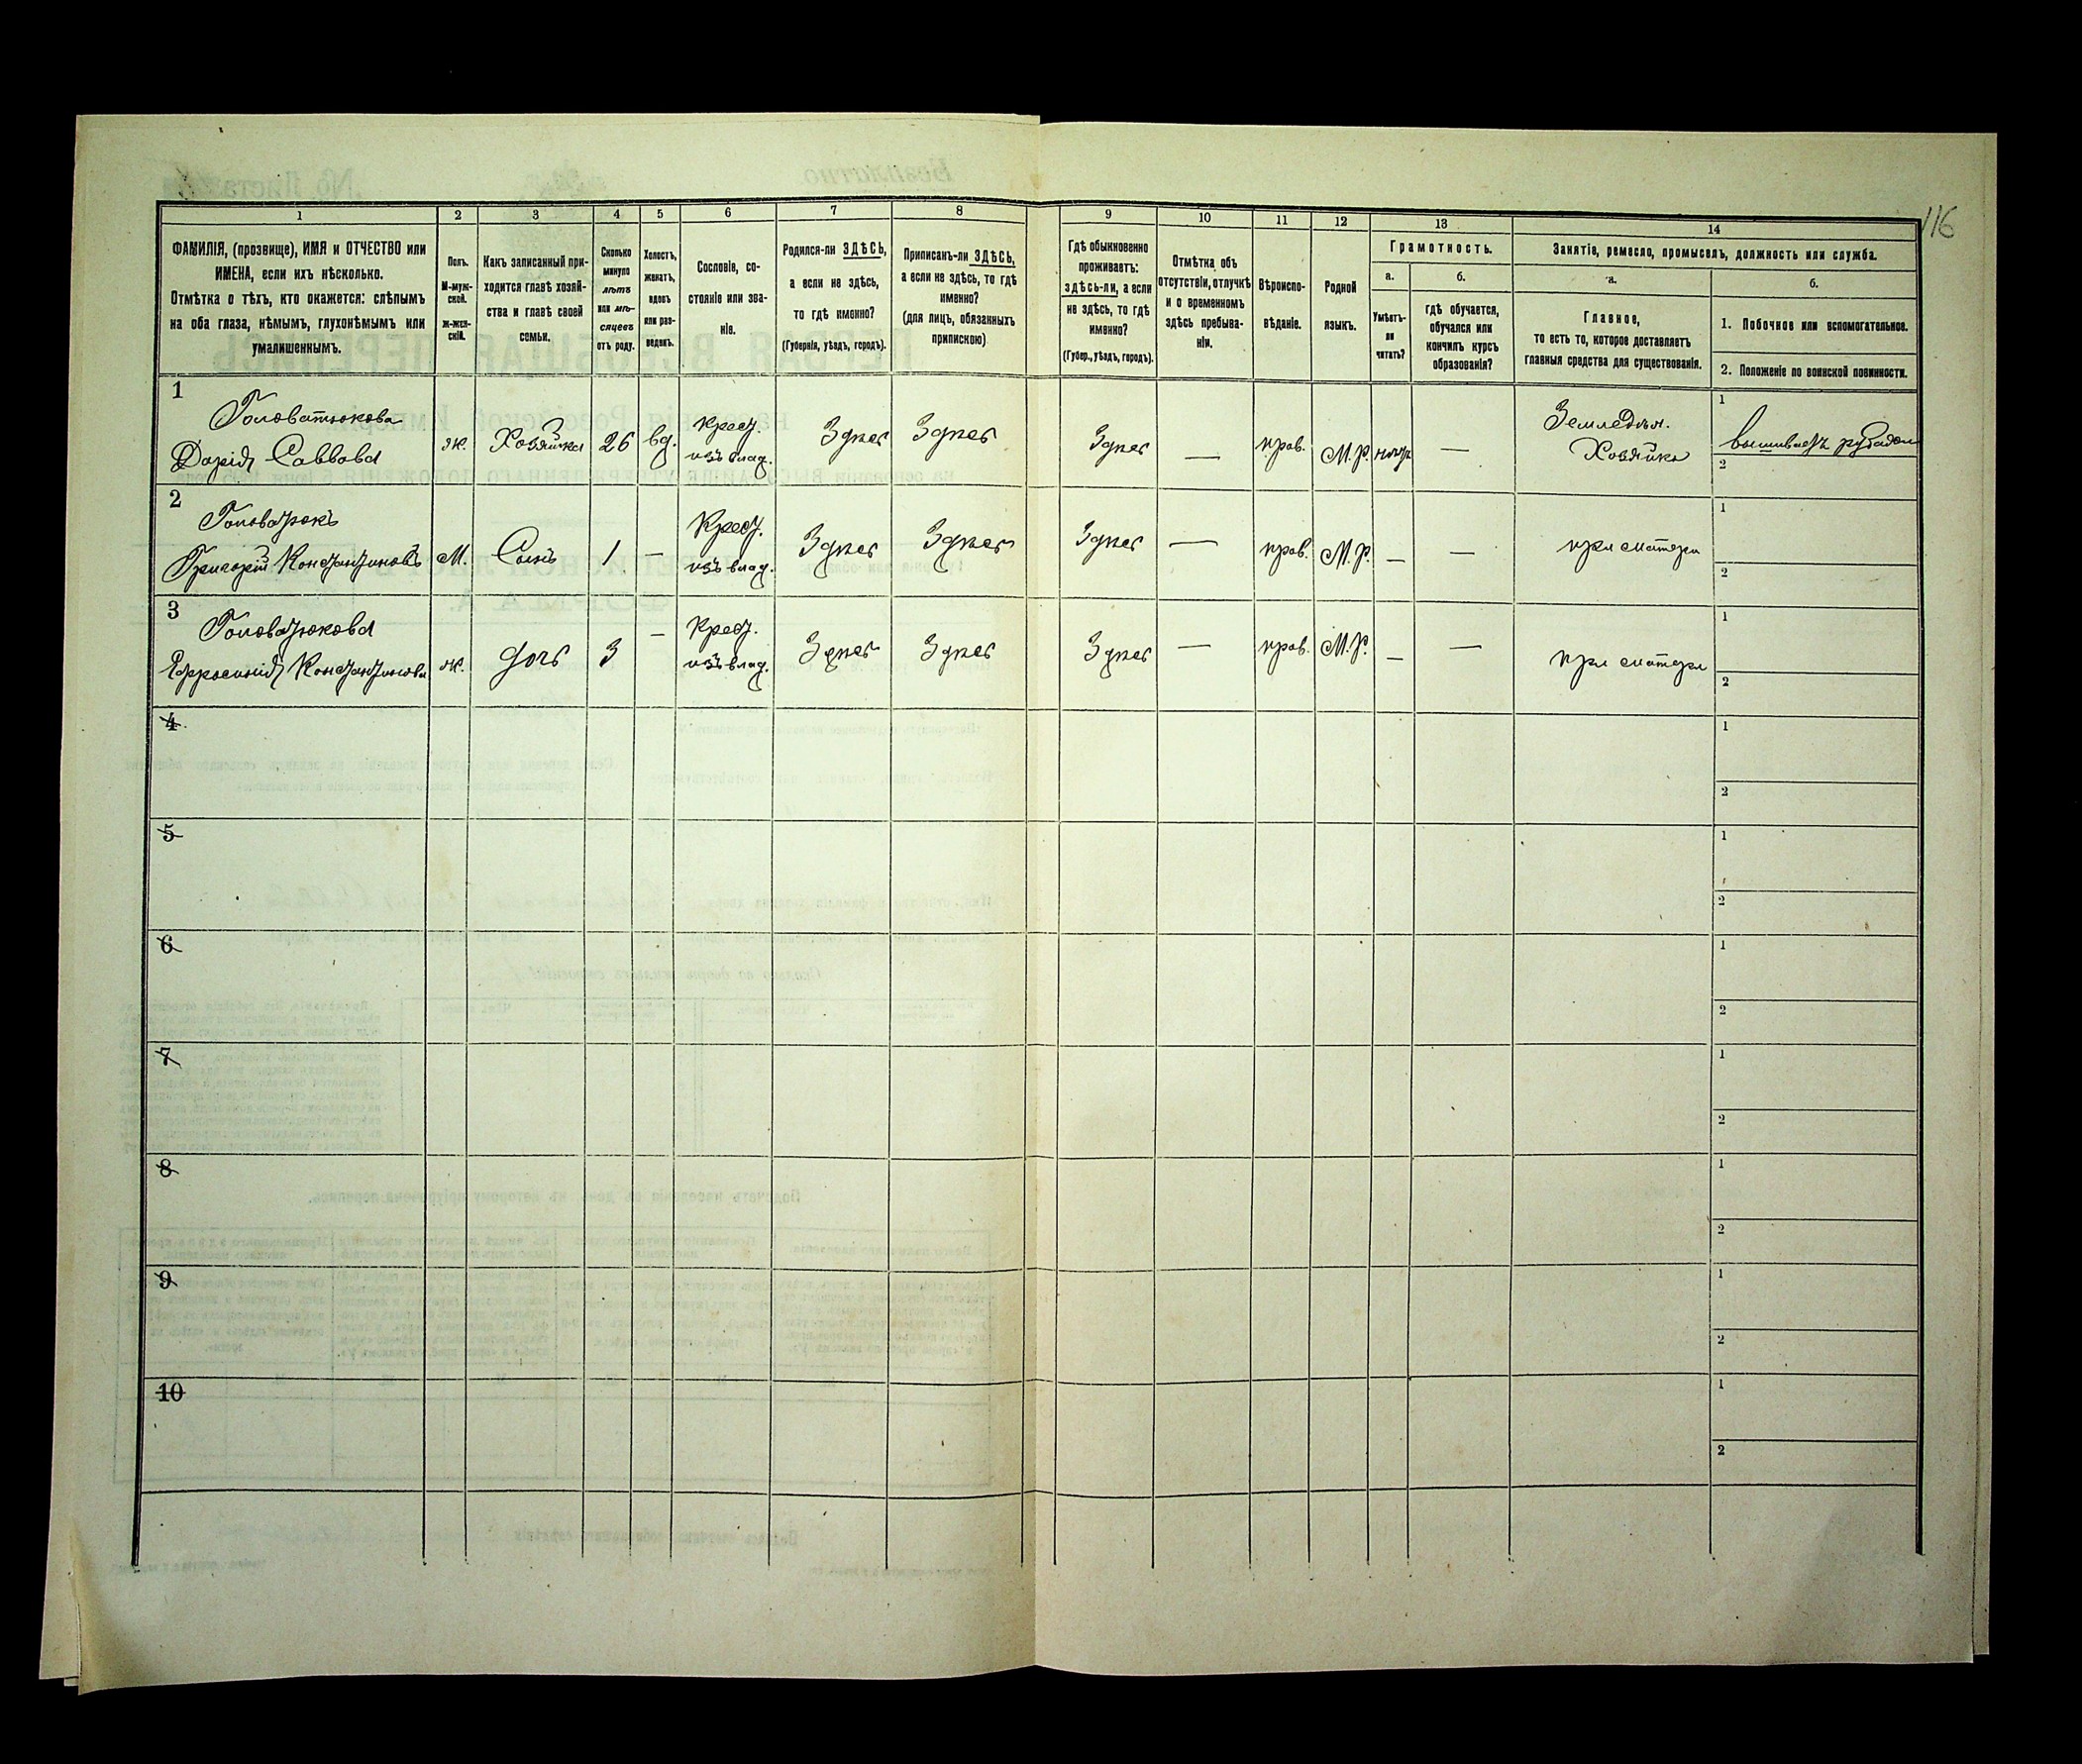 116
1 2 3 4 5 6 7 8 9 10 11 12 13 14
ФАМИЛІЯ, (прозвище), ИМЯ и ОТЧЕСТВО или
ИМЕНА, если ихъ нѣсколько.
Отмѣтка о тѣхъ, кто окажется: слѣпымъ
на оба глаза, нѣмымъ, глухонѣмымъ или
умалишеннымъ.
Полъ.
М-муж-
ской.
ж-жен-
скій.
Какъ записанный при-
ходится главѣ хозяй-
ства и главѣ своей
семьи.
Сколько
минуло
лѣтъ
или мѣ-
сяцевъ
отъ роду.
Холостъ,
женатъ,
вдовъ
или раз-
веденъ.
Сословіе, со-
стояніе или зва-
ніе.
Родился-ли ЗДѢСЬ,
а если не здѣсь,
то гдѣ именно?
(Губернія, уѣздъ, городъ).
Приписанъ-ли ЗДѢСЬ,
а если не здѣсь, то гдѣ
именно?
(для лицъ, обязанныхъ
припискою)
Гдѣ обыкновенно
проживаетъ:
здѣсь-ли, а если
не здѣсь, то гдѣ
именно?
(Губер., уѣздъ, городъ).
Отмѣтка объ
отсутствіи, отлучкѣ
и о временномъ
здѣсь пребыва-
ніи.
Вѣроиспо-
вѣданіе.
Родной
языкъ.
Грамотность.
а.
Умѣетъ-
ли
читать?
б.
гдѣ обучается,
обучался или
кончилъ курсъ
образованія?
Занятіе, ремесло, промыселъ, должность или служба.
а.
Главное,
то есть то, которое доставляетъ
главныя средства для существованія.
б.
1. Побочное или вспомогательное.
2. Положеніе по воинской повинности.
1
Головатюкова
Дарія Саввова
ж.
Хозяйка
26
вд.
Крест.
изъ влад.
Здѣсь
Здѣсь
Здѣсь
—
прав.
М.Р.
нѣтъ
—
Земледѣл.
Хозяйка
1 вышиваетъ
2
2
Головатюкъ
Григорій Константиновъ
М.
Сынъ
1
—
Крест.
изъ влад.
Здѣсь
Здѣсь
Здѣсь
—
прав.
М.Р.
—
—
при матери
1
2
3
Головатюкова
Ефросинія Константинова
ж.
дочь
3
—
Крест.
изъ влад.
Здѣсь
Здѣсь
Здѣсь
—
прав.
М.Р.
—
—
при матери
1
2
4
1
2
5
1
2
6
1
2
7
1
2
8
1
2
9
1
2
10
1
2